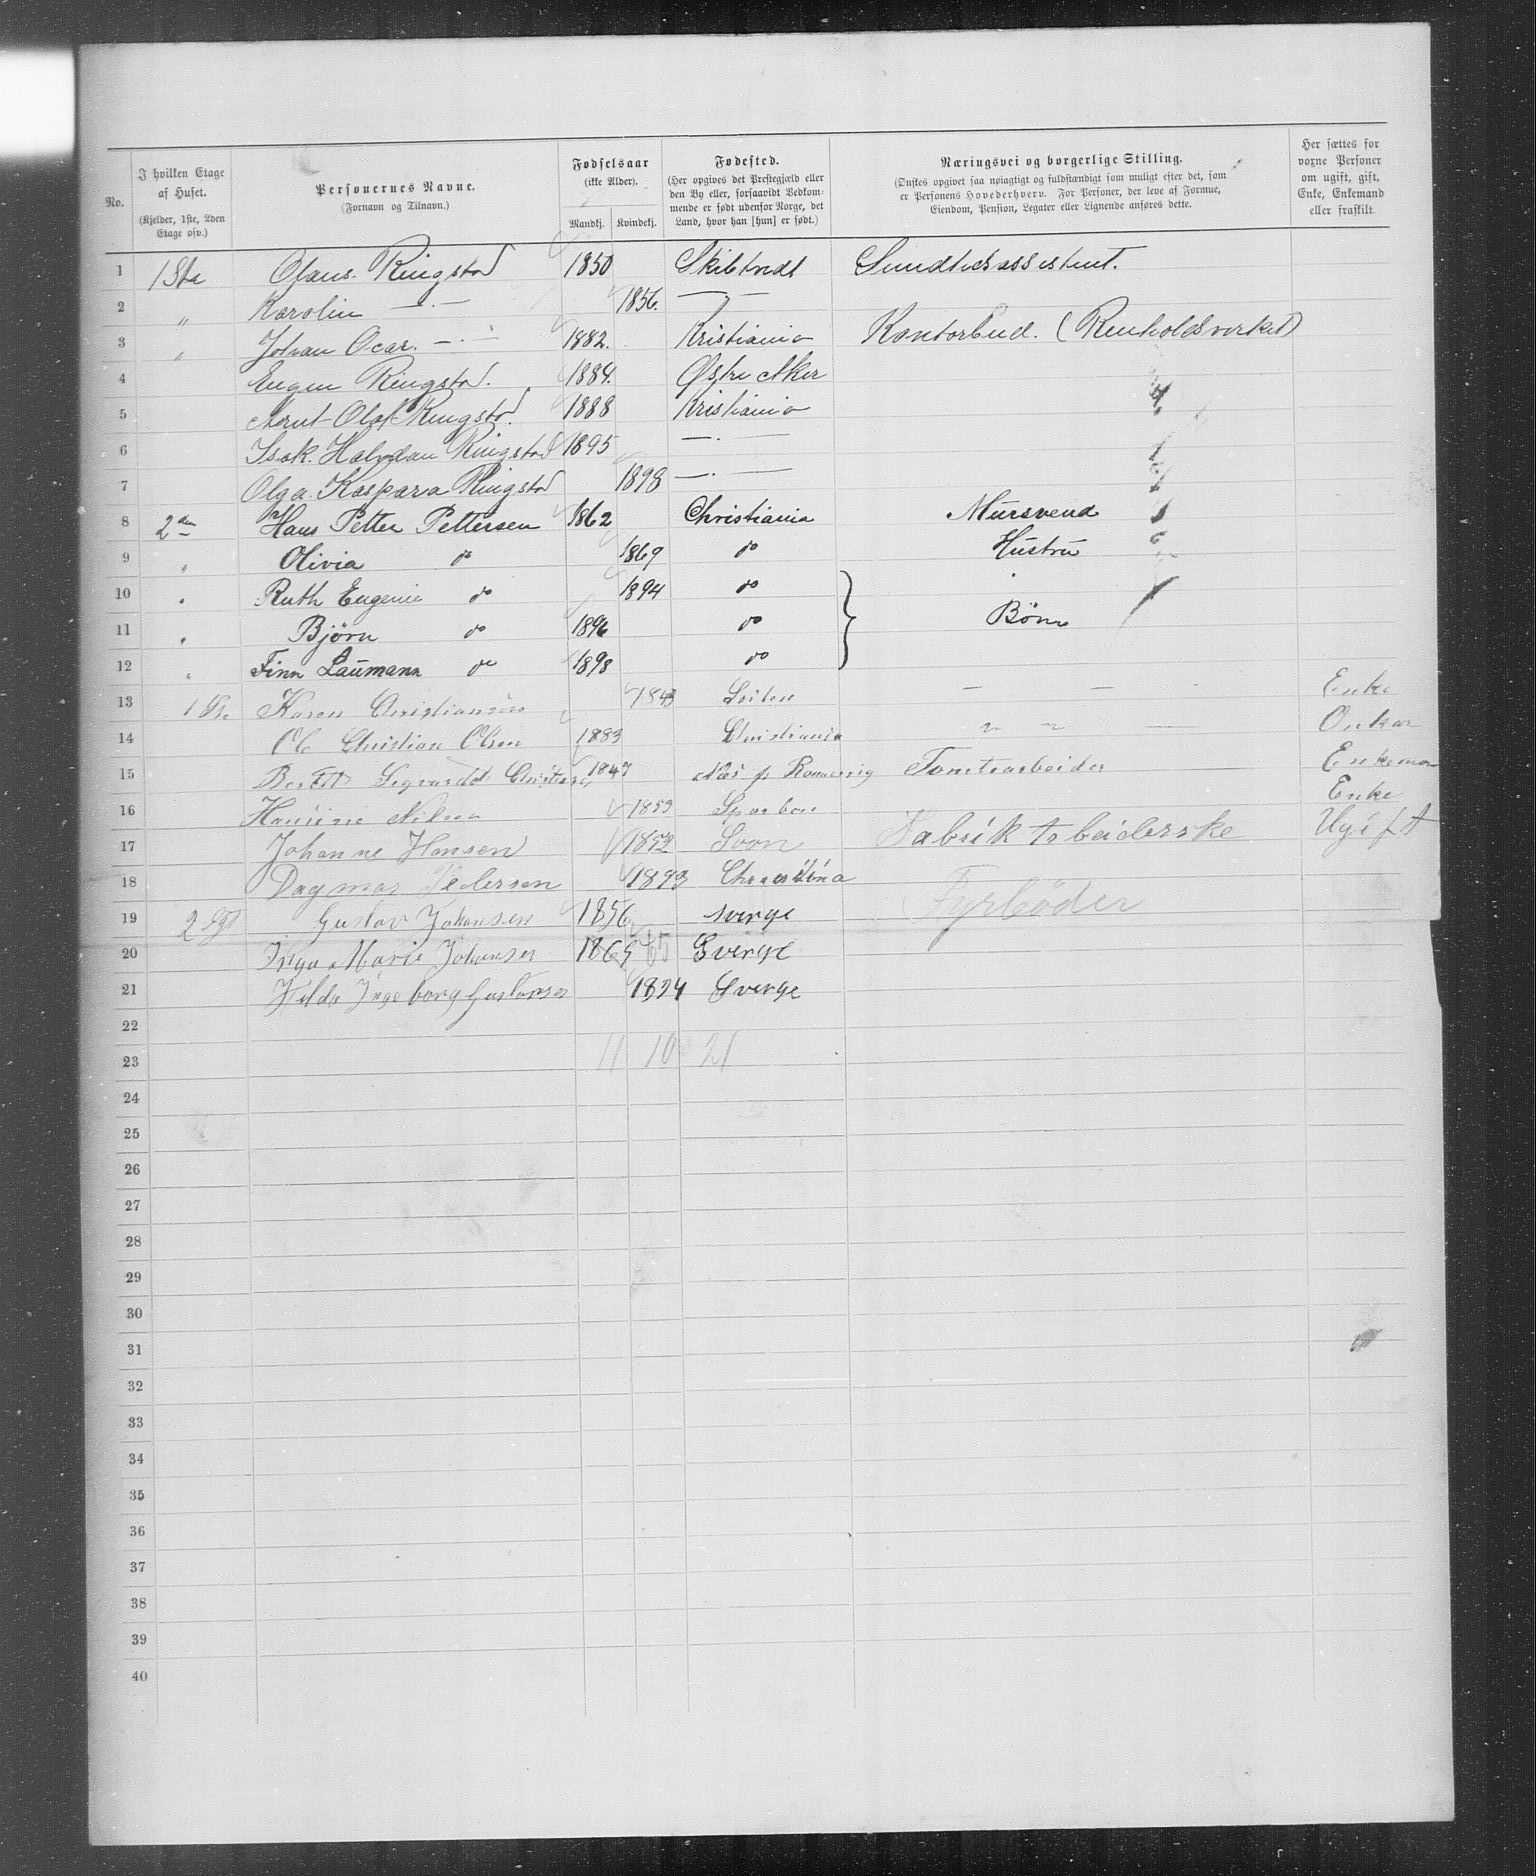 No. | I hvilken Etage af Huset. (Kjelder, 1ste, 2den Etage osv.) | Personernes Navne. (Fornavn og Tilnavn.) | Fødselsaar (ikke Alder). Mandkj. Kvindekj. | Fødested. (Her opgives det Prestegjæld eller den By eller, forsaavidt Vedkommende er født udenfor Norge, det Land, hvor han [hun] er født.) | Næringsvei og borgerlige Stilling. (Ønskes opgivet saa nøiagtigt og fuldstændigt som muligt efter det, som er Personens Hovederhverv. For Personer, der leve af Formue, Eiendom, Pension, Legater eller Lignende anføres dette.) | Her sættes for voxne Personer om ugift, gift, Enke, Enkemand eller fraskilt.
1 1Sta Olaus. Ringstad 1850 Skibtvedt Sundhedsassistent.
2 " Karolin —·— 1856. —"—
3 " Johan Ocar. —·— 1882. Kristiania Kontorbud. (Renholdsverket)
4 Eugen Ringstad. 1884. Østre Aker
5 Olaf Ringstad. 1888 Kristiania
6 Isak. Halvdan Ringstad 1895 —·—
7 Olga. Kaspara Ringstad 1898 —·—
8 2den Hans Petter Pettersen 1862 Christiania Mursvend
9 " Olivia do 1869 do Hustru
10 " Ruth Eugenie do 1894 do
11 " Bjørn do 1896 do Børn
12 " Finn Laumann do 1898 do
13 Karen Christiansen 1843 Løiten — — Enke
14 Ole Christian Olsen 1883 Christiania " " —
15 1847 Næs p Romerrig Tomtearbeider Enkeman
16 Nilsen 1853 Enke
17 Johanne Hansen 1852 Soon Fabrik arbeiderske Ugift
18 Dagmar Pedersen 1893
19 Gustav Johansen 1856 sverge Fyrbøder
20 Inga Marie Johansen 1865 65 Sverge
21 Hilda Ingeborg Gustavsen 1894 Sverge
22
23 11 10 21
24
25
26
27
28
29
30
31
32
33
34
35
36
37
38
39
40